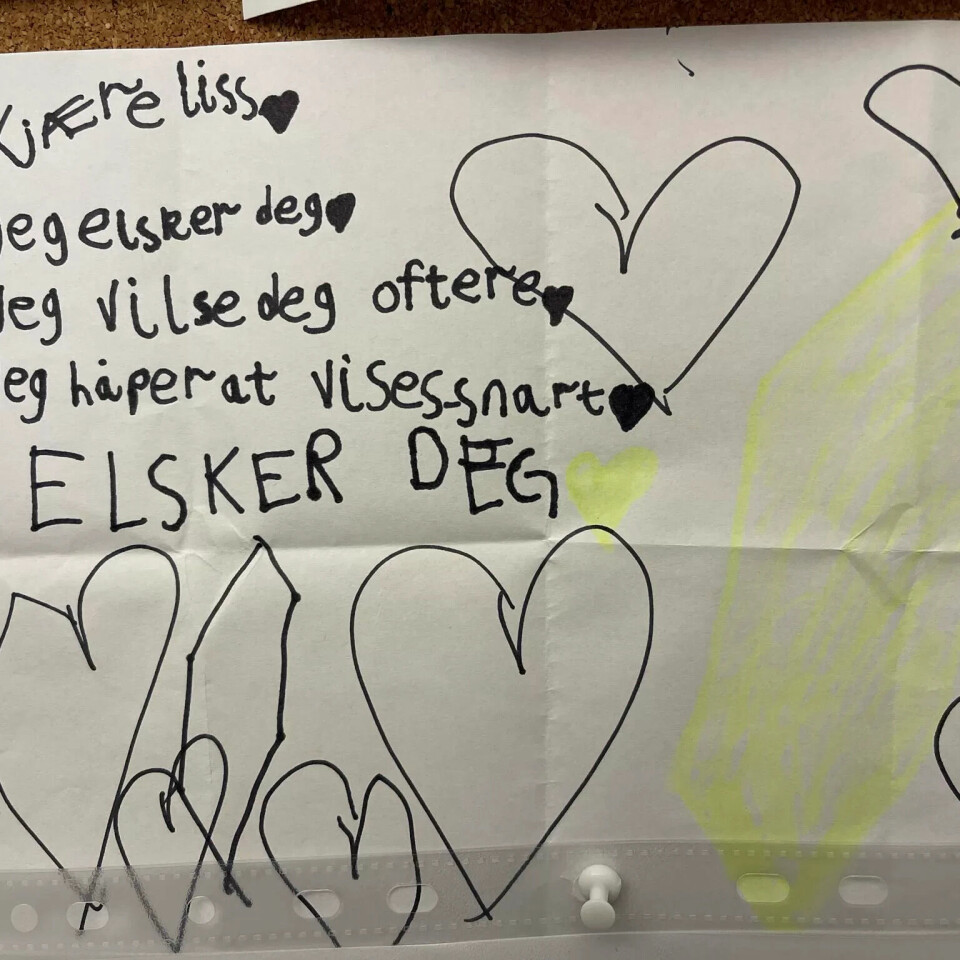 Kjære liss
Jeg elsker deg
Jeg vil se deg oftere
eg håper at vi ses snart
ELSKER DEG